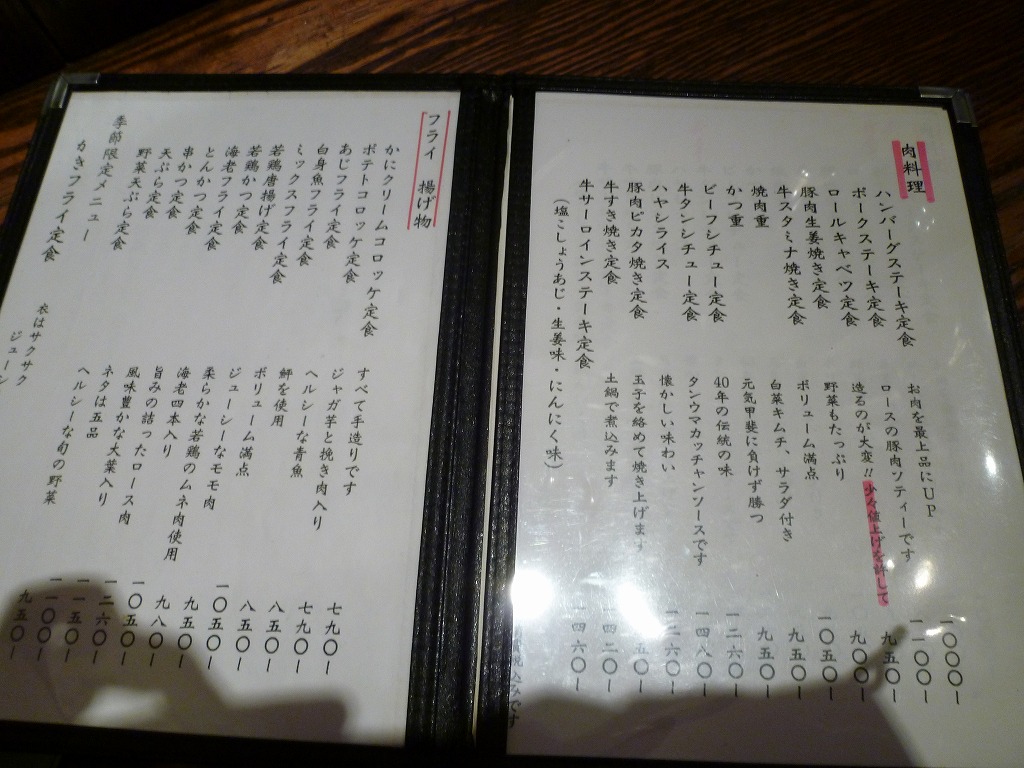 肉料理
ハンバーグステーキ定食
ポークステーキ定食
ロールキャベツ定食
豚肉生姜焼き定食
牛スタミナ焼き定食
焼肉重
かつ重
ビーフシチュー定食
牛タンシチュー定食
ハヤシライス
豚肉ピカタ焼き定食
牛すき焼き定食
牛サーロインステーキ定食
(塩こしょうあじ・生姜味・にんにく味)
お肉を最上品にUP
ロースの豚肉ソティーです
造るのが大変!!少々値上げを許して
野菜もたっぷり
ボリューム満点
白菜キムチ、サラダ付き
元気甲斐に負けず勝つ
40年の伝統の味
タンウマカッチャンソースです
懐かしい味わい
玉子を絡めて焼き上げます
土鍋で煮込みます
一〇〇〇ー
一一〇〇ー
九五〇ー
九〇〇ー
一〇五〇ー
九五〇ー
九五〇ー
一二六〇ー
一四八〇ー
一二六〇ー
一四二〇ー
一四六〇ー
フライ 揚げ物
かにクリームコロッケ定食
ポテトコロッケ定食
あじフライ定食
白身魚フライ定食
ミックスフライ定食
若鶏唐揚げ定食
若鶏かつ定食
海老フライ定食
とんかつ定食
串かつ定食
天ぷら定食
野菜天ぷら定食
季節限定メニュー
かきフライ定食
すべて手造りです
ジャガ芋と挽き肉入り
ヘルシーな青魚
鮃を使用
ボリューム満点
ジューシーなモモ肉
柔らかな若鶏のムネ肉使用
海老四本入り
旨みの詰ったロース肉
風味豊かな大葉入り
ネタは五品
ヘルシーな旬の野菜
衣はサクサク
ジューシ
七九〇ー
七九〇ー
八五〇ー
八五〇ー
一〇五〇ー
九五〇ー
九八〇ー
一〇五〇ー
一二六〇ー
一一五〇ー
一〇〇〇ー
九五〇ー